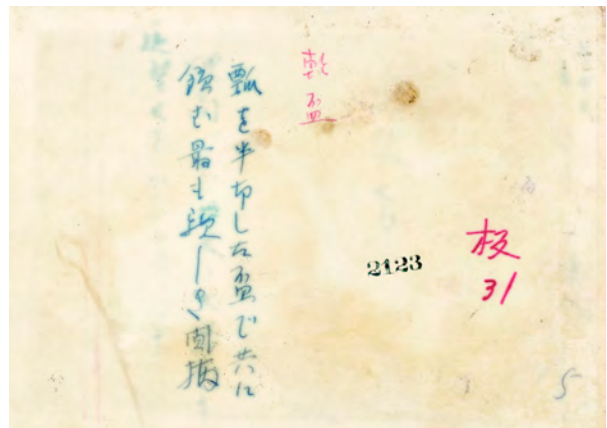 板
31
2123
5
乾盃
瓢を半切した盃で共に
飲む最も親しき間